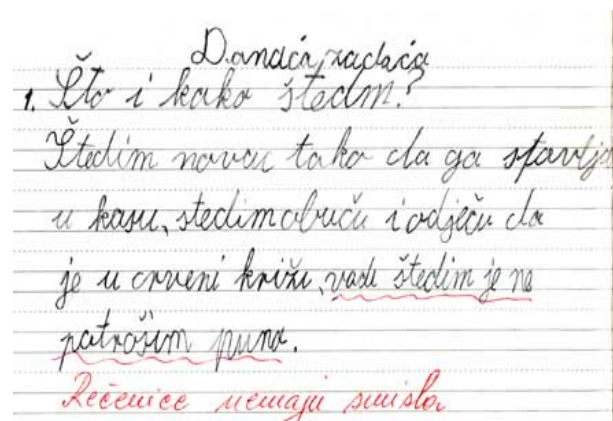 Danaća zadaća
1. Što i kako štedm?
Štedim novac tako da ga stavlja
u kasu, stedim obuču i odječu da
je u crveni križu, vade štedim je ne
patrošim puna.
Rečenice nemaju smisla